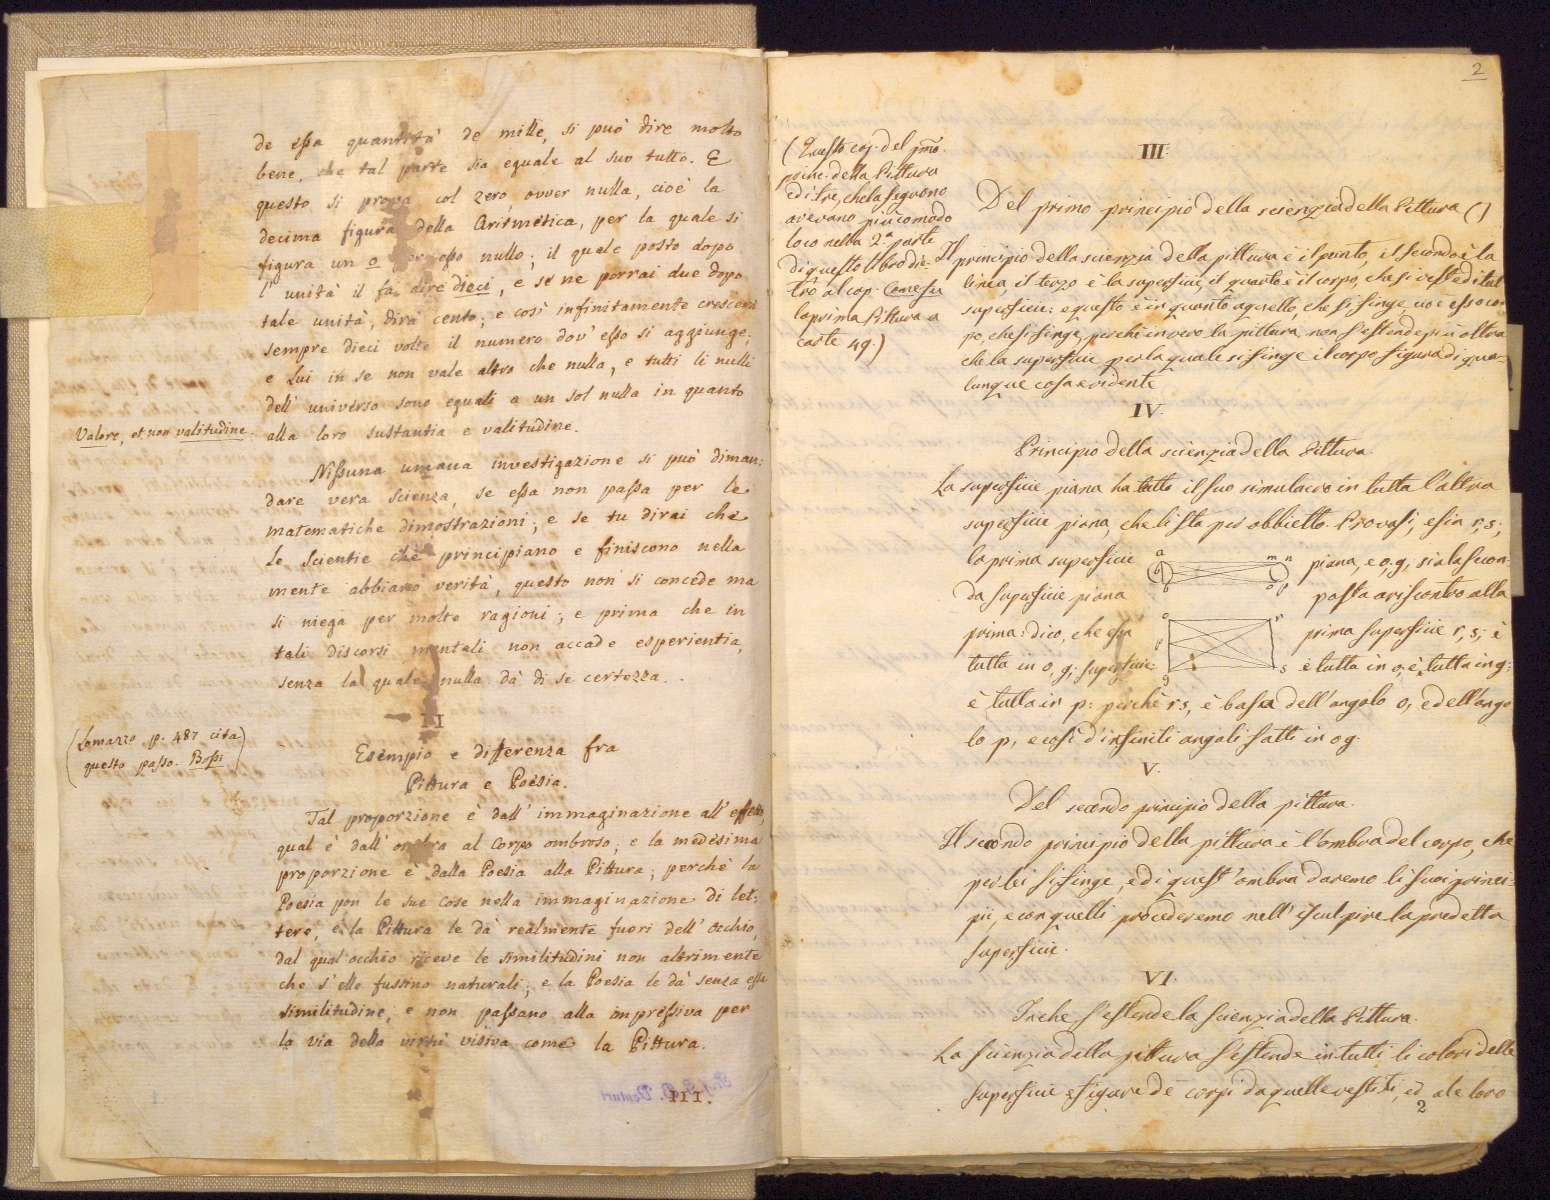 de essa quantità de mille, si può dire molto
bene, che tal parte sia eguale al suo tutto. E
questo si prova col zero, ovver nulla, cioè la
decima figura della Aritmetica, per la quale si
figura un o per esso nullo; il quale posto dopo
l'unità il fa dire dieci, e se ne porrai due dopo
tale unità, dirà cento; e così infinitamente crescerà
sempre dieci volte il numero dov'esso si aggiunge;
e lui in se non vale altro che nulla, e tutti li nulli
dell'universo sono eguali a un sol nulla in quanto
Valore, et non valitudine.
alla loro sustantia e valitudine.
Nissuna umana investigazione si può diman:
dare vera scienza, se essa non passa per le
matematiche dimostrazioni; e se tu dirai che
le scientie che principiano e finiscono nella
mente abbiano verità, questo non si concede ma
si niega per molte ragioni; e prima che in
tali discorsi mentali non accade esperientia,
senza la quale nulla dà di se certezza.
II
(Lomazzo p. 487 cita
questo passo. Bossi)
Esempio e differenza fra
Pittura e Poesia.
Tal proporzione è dall'immaginazione all'effetto,
qual è dall'ombra al corpo ombroso; e la medesima
proporzione è dalla Poesia alla Pittura; perchè la
Poesia pon le sue cose nella immaginazione di let:
tere, e la Pittura le dà realmente fuori dell'occhio,
dal qual'occhio riceve le similitudini non altrimente
che s'elle fussino naturali; e la Poesia le dà senza essa
similitudine, e non passano alla impressiva per
la via della virtù visiva come la Pittura.
III.
2
(Questo cap. del pmo.
princ. della Pittura
ed i tre, che la seguono
avevano più comodo
loco nella 2.a parte
di questo libro die-
tro al cap. Come fu
la prima Pittura a
carte 49.)
III.
Del primo principio della scienzia della Pittura ( )
Il principio della scienzia della pittura è il punto, il secondo è la
linia, il terzo è la superficie, il quarto è il corpo, che si veste di tal
superficie: e questo è in quanto a quello, che si finge, cioè esso cor
po, che si finge, perchè in vero la pittura non s'estende più oltra
che la superficie per la quale si finge il corpo figura di qua-
lunque cosa evidente
IV.
Principio della scienzia della Pittura.
La superficie piana ha tutto il suo simulacro in tutta l'altra
superficie piana, che li sta per obbietto. Provasi, e sia r, s;
la prima superficie
a
b
m n
o p
piana, e o, g, sia la secon-
da superficie piana
posta a riscontro alla
prima: dico, che essa
o
r
prima superficie r, s; è
tutta in o, g; superficie:
p
g
s
è tutta in o; è tutta in g;
è tutta in p: perchè r s, è basa dell'angolo o, e dell'ango
lo p, e così d'infiniti angoli fatti in o g.
V.
Del secondo principio della pittura.
Il secondo principio della pittura è l'ombra del corpo, che
per lei si finge, e di quest'ombra daremo li suoi princi-
pii, e con quelli procederemo nell'isculpire la predetta
superficie.
VI.
In che s'estende la scienzia della Pittura.
La scienzia della pittura s'estende in tutti li colori delle
superficie e figure de corpi da quelle vestiti, ed a le loro
2